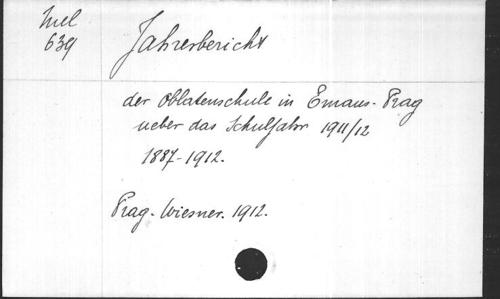 Mel
639
Jahresbericht
der Oblatenschule in Emaus-Prag
ueber das Schuljahr 1911/12
1887-1912.
Prag. Wiesner. 1912.